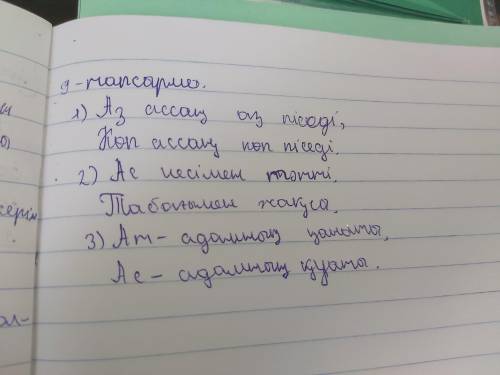 9-тапсарма.
1) Аз ассаң аз піседі,
Көп ассаң көп піседі.
2) Ас иесімен тәтті.
Табағымен жақса.
3) Ат - адамның қанаты,
Ас - адамның қуаты.